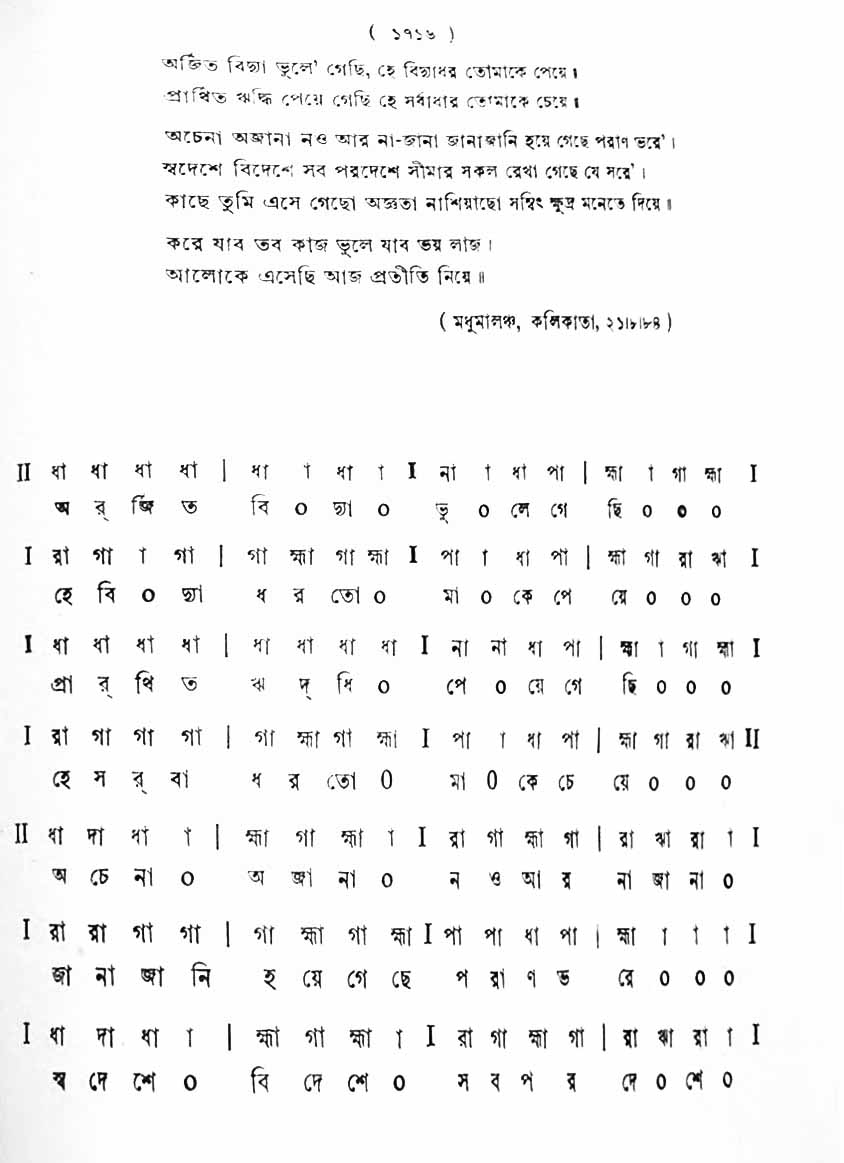 ( ১৭১৬ )
অর্জিত বিদ্যা ভুলে' গেছি, হে বিদ্যাধর তোমাকে পেয়ে।
প্রার্থিত ঋদ্ধি পেয়ে গেছি হে সর্বাধার তোমাকে চেয়ে॥
অচেনা অজানা নও আর না-জানা জানাজানি হয়ে গেছে পরাণ ভরে'।
স্বদেশে বিদেশে সব পরদেশে সীমার সকল রেখা গেছে যে সরে'।
কাছে তুমি এসে গেছো অজ্ঞতা নাশিয়াছো সম্বিৎ ক্ষুদ্র মনেতে দিয়ে॥
করে যাব তব কাজ ভুলে যাব ভয় লাজ।
আলোকে এসেছি আজ প্রতীতি নিয়ে॥
( মধুমালঞ্চ, কলিকাতা, ২১।৮।৮৪ )
II ধা ধা ধা ধা | ধা া ধা া I না া ধা পা | হ্মা া গা হ্মা I
অ র্ জি ত বি ০ দ্যা ০ ভু ০ লে গে ছি ০ ০ ০
I রা গা া গা | গা হ্মা গা হ্মা I পা া ধা পা | হ্মা গা রা ঋা I
হে বি ০ দ্যা ধ র তো ০ মা ০ কে পে য়ে ০ ০ ০
I ধা ধা ধা ধা | ধা ধা ধা ধা I না না ধা পা | হ্মা া গা হ্মা I
প্রা র্ থি ত ঋ দ্ ধি ০ পে ০ য়ে গে ছি ০ ০ ০
I রা গা গা গা | গা হ্মা গা হ্মা I পা া ধা পা | হ্মা গা রা ঋা II
হে স র্ বা ধ র তো 0 মা 0 কে চে য়ে ০ ০ ০
II ধা দা ধা া | হ্মা গা হ্মা া I রা গা হ্মা গা | রা ঋা রা া I
অ চে না ০ অ জা না ০ ন ও আ র না জা না ০
I রা রা গা গা | গা হ্মা গা হ্মা I পা পা ধা পা | হ্মা া া া I
জা না জা নি হ য়ে গে ছে প রা ণ ভ রে ০ ০ ০
I ধা দা ধা া | হ্মা গা হ্মা া I রা গা হ্মা গা | রা ঋা রা া I
স্ব দে শে ০ বি দে শে ০ স ব প র দে ০ শে ০